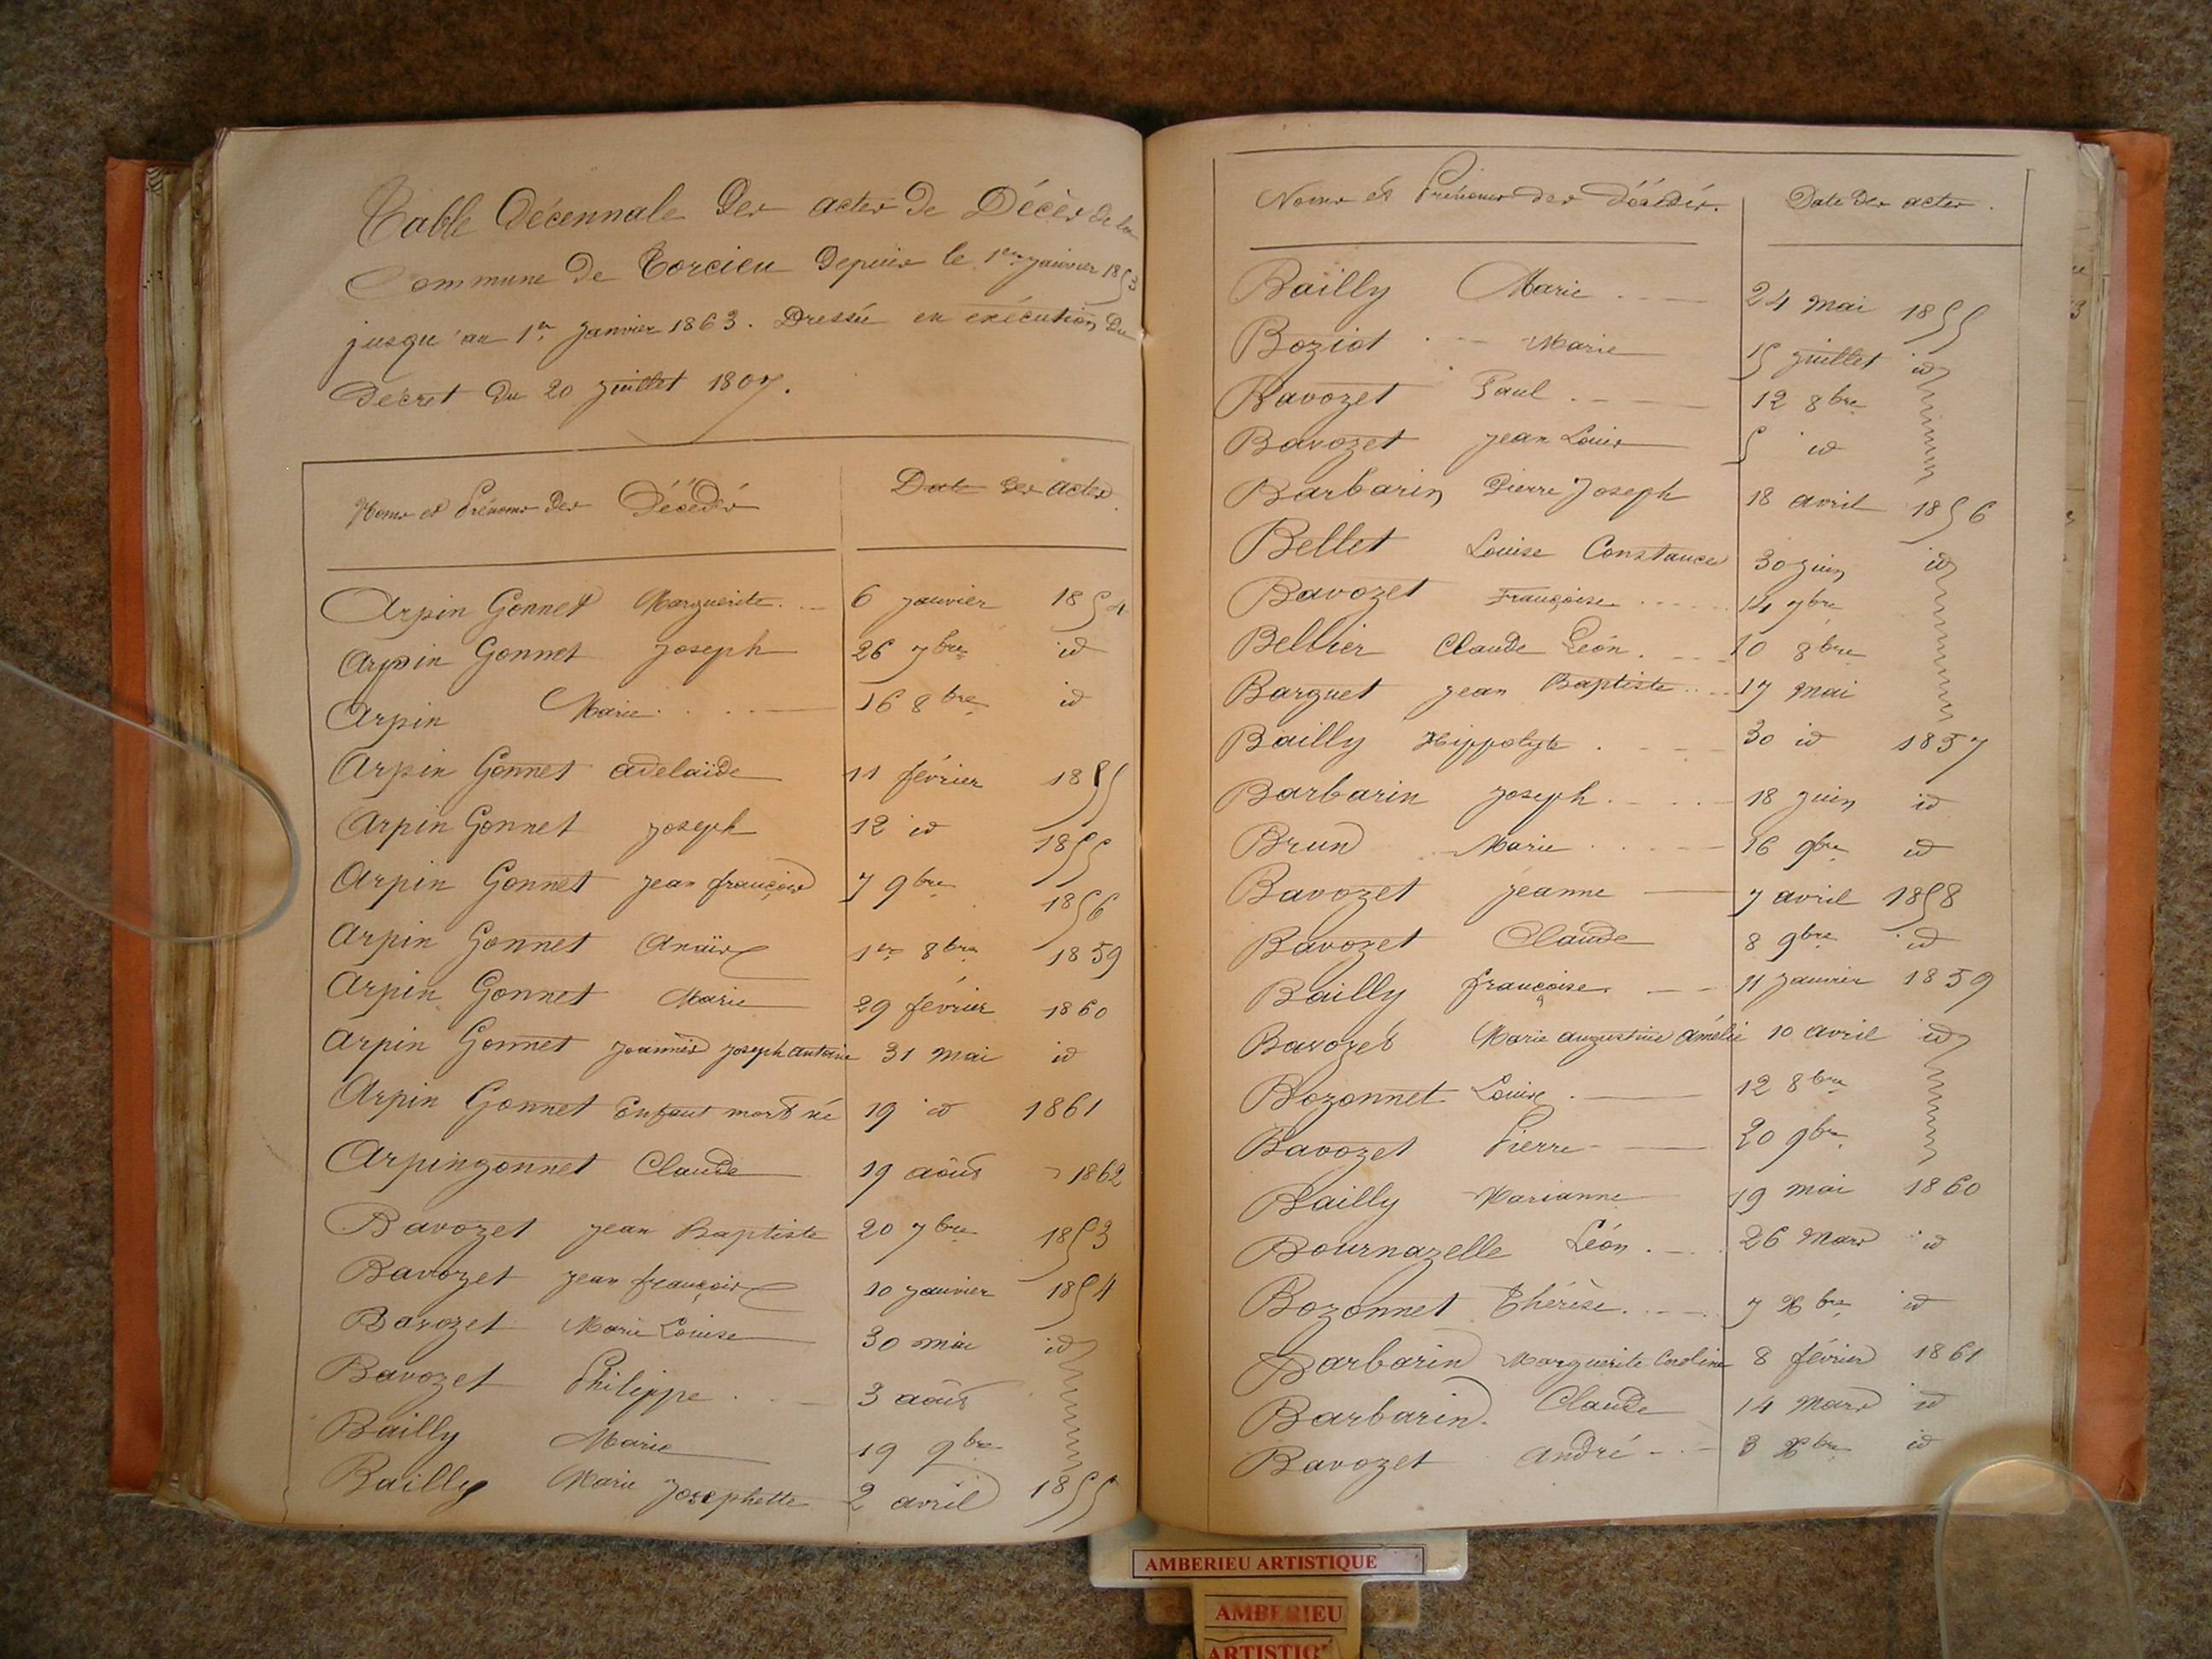 Table Décennale des actes de Décès de la
Commune de Torcieu depuis le 1er janvier 1853
jusqu'au 1er Janvier 1863. Dressée en exécution du
Décret du 20 juillet 1807.
Noms et Prénoms des Décédés Date des actes
Arpin Gonnet Marguerite 6 janvier 1854
Arpin Gonnet Joseph 26 7bre id
Arpin Marie 16 8bre id
Arpin Gonnet adelaïde 11 février 1855
Arpin Gonnet Joseph 12 id 1855
Arpin Gonnet jean françois 7 9bre 1856
Arpin Gonnet Anaïs 1er 8bre 1859
Arpin Gonnet Marie 29 février 1860
Arpin Gonnet Joannès Joseph antoine 31 mai id
Arpin Gonnet Enfant mort né 19 id 1861
Arpingonnet Claude 19 août 1862
Bavozet jean Baptiste 20 7bre 1853
Bavozet jean françois 10 janvier 1854
Bavozet Marie Louise 30 mai id
Bavozet Philippe 3 août
Bailly Marie 19 9bre
Bailly Marie Josephette 2 avril 1855
Noms et Prénoms des Décédés. Date des actes.
Bailly Marie 24 mai 1855
Boziot Marie 15 juillet id
Bavozet Paul 12 8bre
Bavozet jean Louis 5 id
Barbarin Pierre Joseph 18 avril 1856
Bellet Louise Constance 30 juin id
Bavozet Françoise 14 7bre
Bellier Claude Léon 10 8bre
Barguet jean Baptiste 17 mai
Bailly Hippolyte 30 id 1857
Barbarin Joseph 18 juin id
Brun Marie 16 9bre id
Bavozet jeanne 7 avril 1858
Bavozet Claude 8 9bre id
Bailly françoise 11 janvier 1859
Bavozet Marie augustine Amélie 10 avril id
Bozonnet Louise 12 8bre
Bavozet Pierre 20 9bre
Bailly Marianne 19 mai 1860
Bournazelle Léon 26 Mars id
Bozonnet Thérèse 7 Xbre id
Barbarin Marguerite Caroline 8 février 1861
Barbarin Claude 14 Mars id
Bavozet André 3 Xbre id
AMBERIEU ARTISTIQUE
AMBERIEU
ARTISTIQ